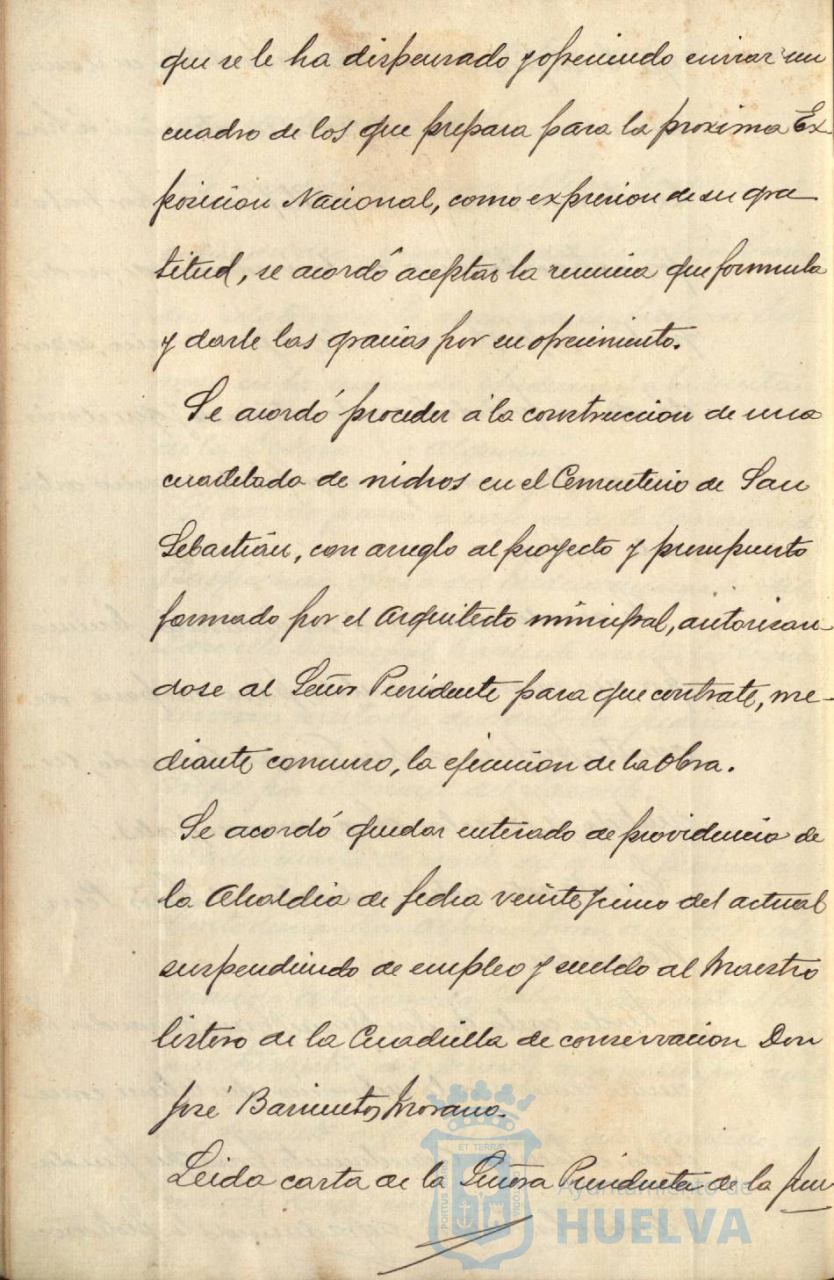 que se le ha dispensado y ofreciendo enviar un
cuadro de los que prepara para la proxima Ex
posicion Nacional, como expresion de su gra
titud, se acordó aceptar la renuncia que formula
y darle las gracias por su ofrecimiento.
Se acordó proceder á la construccion de una
cuartelada de nichos en el Cementerio de San
Sebastián, con arreglo al proyecto y presupuesto
formado por el Arquitecto municipal, autorizan-
dose al Señor Presidente para que contrate, me-
diante concurso, la ejecucion de la obra.
Se acordó quedar enterado de providencia de
la Alcaldia de fecha veinte y cinco del actual
suspendiendo de empleo y sueldo al Maestro
listero de la Cuadrilla de conservacion Don
José Barrientos Morano.
Leida carta de la Señora Presidenta de la Jun
ET TERRÆ
PORTUS
Ayuntamiento de
HUELVA